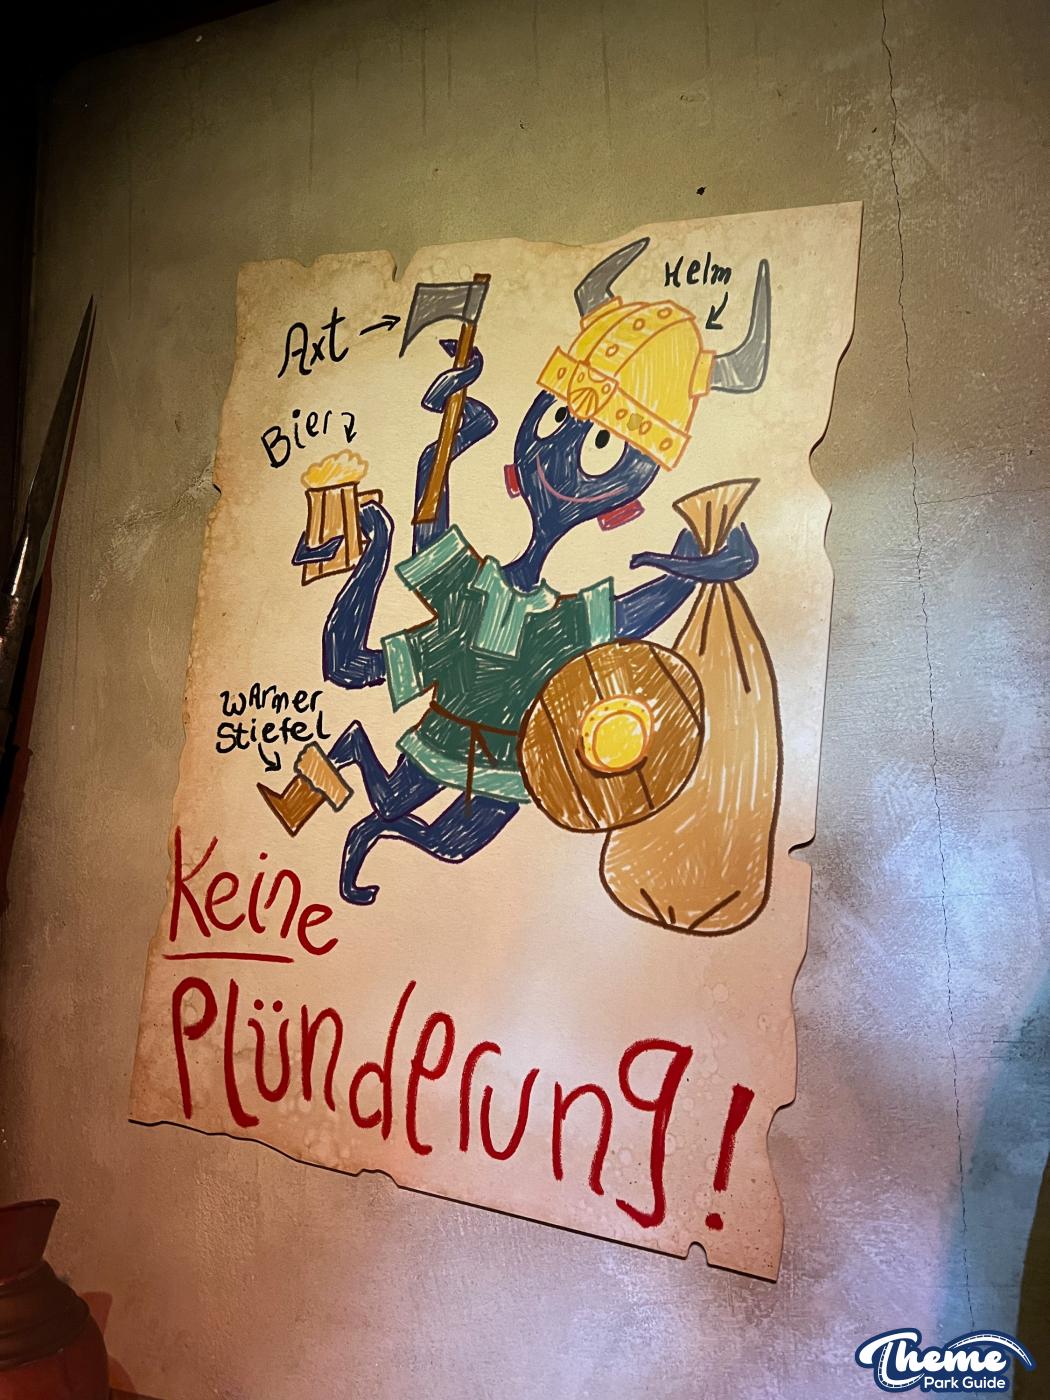 Helm
Axt
Bier
Warmer
Stiefel
Keine
Plünderung!
Theme
Park Guide